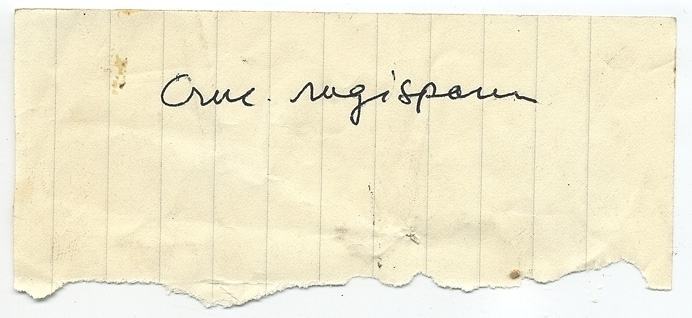 Cruc. rugisporum